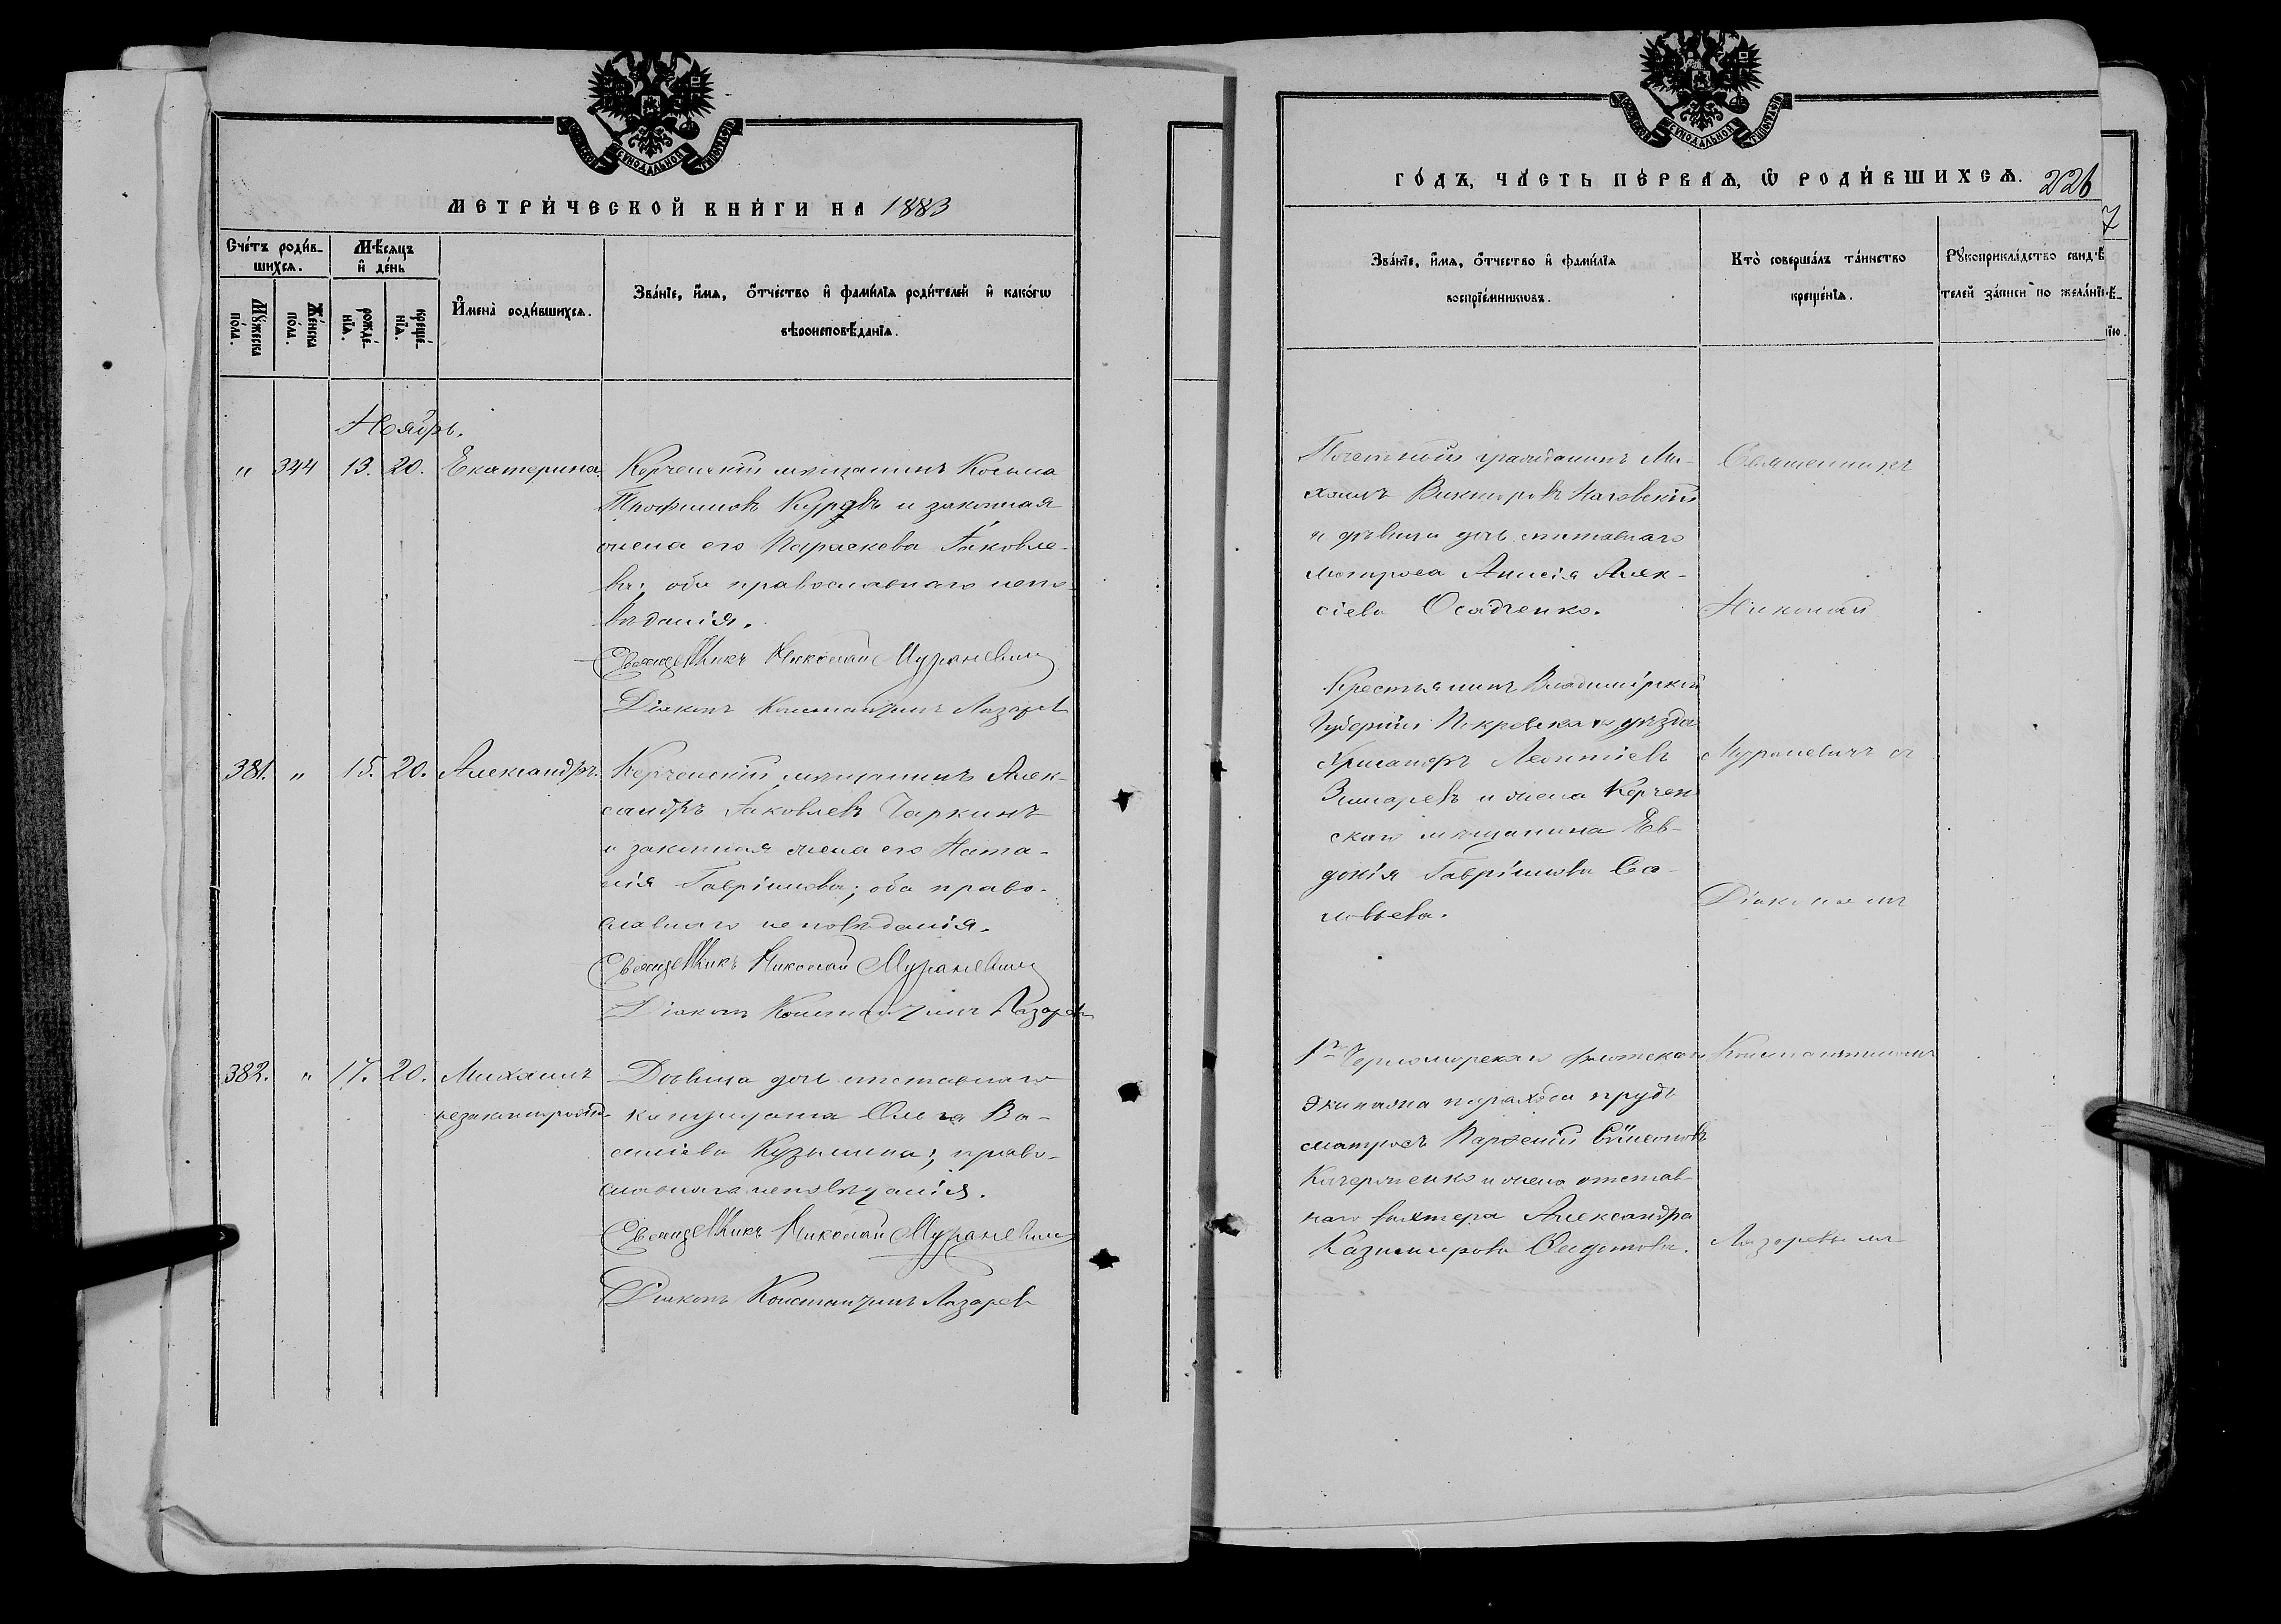 МЕТРИ́ЧЕСКОЙ КНИ́ГИ НА 1883
Сче́тъ роди́в-
шихся.
Мѣ́сяцъ
и҆ де́нь
Мꙋ́жеска
по́ла.
Же́нска
по́ла.
рожде́-
нїѧ.
креще́-
нїѧ.
И҆мена̀ роди́вшихсѧ.
Зва́нїе, и҆́мѧ, ѻ҆́тчество и҆ фами́лїѧ роди́телей и҆ како́гѡ
вѣроисповѣ́данїѧ.
Ноябрь.
„ 344 13. 20. Екатерина. Керченскій мѣщанинъ Косьма
Трофимовъ Курдъ и законная
жена его Параскева Іаковле-
ва; оба православнаго испо-
вѣданія.
Священникъ Николай Мураневич
Діаконъ Константинъ Лазарев
381. „ 15. 20. Александръ. Керченскій мѣщанинъ Алек-
сандръ Іаковлевъ Чаркинъ
и законная жена его Ната-
лія Гавріилова; оба право-
славнаго исповѣданія.
Священникъ Николай Мураневич
Діаконъ Константинъ Лазарев
382. „ 17. 20. Михаилъ Дѣвица дочь отставнаго
незаконнорожд. Ольга Ва-
силіева Кузьмина; право-
славнаго исповѣданія.
Священникъ Николай Мураневич
Діаконъ Константинъ Лазарев
ГО́ДЪ, ЧА́СТЬ ПЕ́РВАѦ, Ѽ РОДИ́ВШИХСѦ. 226
7
Зва́нїе, и҆́мѧ, ѻ҆́тчество и҆ фами́лїѧ
воспрїе́мникѡвъ.
Кто̀ соверша́лъ та́инство
креще́нїѧ.
Рꙋкоприкла́дство свидѣ́-
телей за́писи по жела́нїю.
Почетный гражданинъ Ми-
хаилъ Викторовъ
и дѣвица дочь отставнаго
матроса Анисія Алек-
сіева Осадченко.
Священникъ
Николай
Крестьянинъ Владимірской
Губерніи Покровскаго уѣзда
Хрисанфъ Леонтіевъ
и жена Керчен
скаго мѣщанина Ев-
докія Гавріилова Со-
ловьева.
Мураневичъ съ
Діакономъ
1го Черноморскаго флотскаго
экипажа
матросъ Парѳеній Симеоновъ
и жена отстав-
наго вахтера Александра
Казимирова
Константиномъ
Лазаревымъ